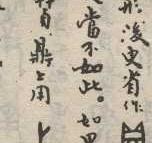 形後更省作
當不如此。如果
自鼎上用